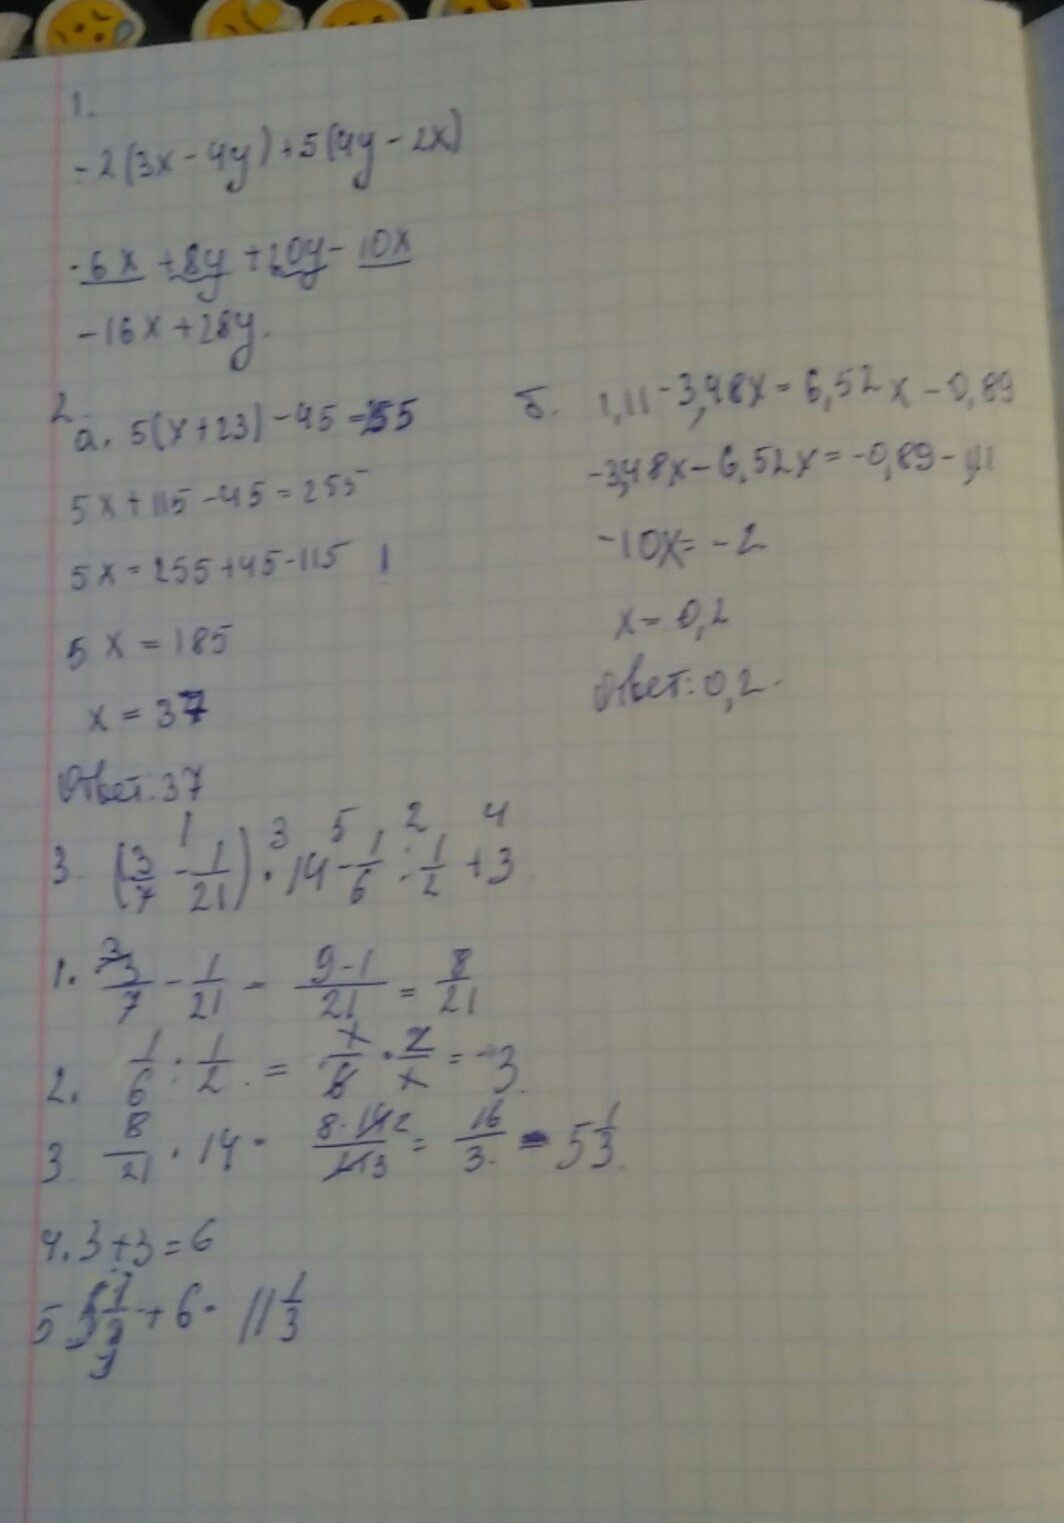 1.
-2(3x-4y)+5(4y-2x)
-6x+8y+20y-10x
-16x+28y.
2.
а. 5(x+23)-45=255
5x+115-45=255
5x=255+45-115
5x=185
x=37
Ответ: 37
б. 1,11-3,48x=6,52x-0,89
-3,48x-6,52x=-0,89-1,11
-10x=-2
x=0,2
Ответ: 0,2.
1 3 5 2 4
3 (3/7-1/21)·14-1/6:1/2+3
1. 3/7-1/21=9-1/21=8/21
2. 1/6:1/2.=1/6·2/1=3
3 8/21·14=8·14 2/21 3=16/3.=5 1/3.
4. 3+3=6
5 5 1/3+6=11 1/3